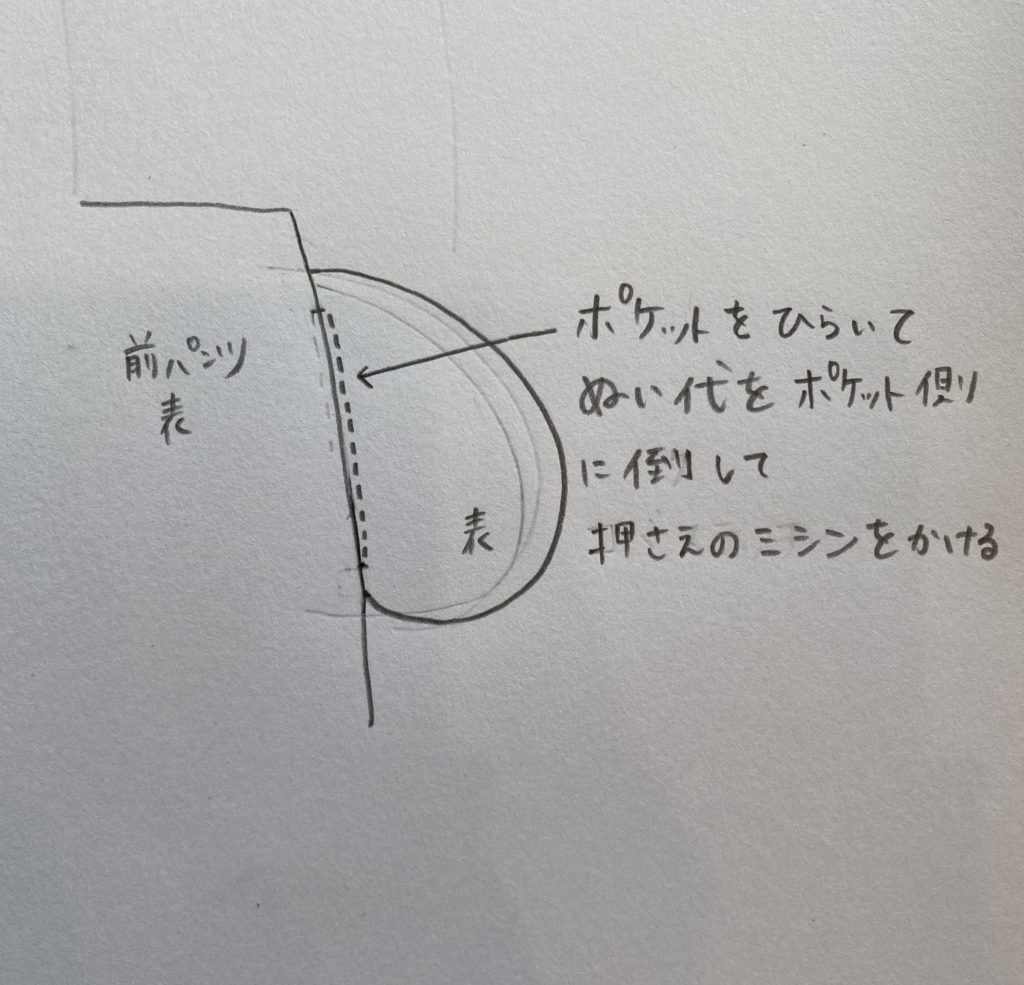 前パンツ
表
ポケットをひらいて
ぬい代をポケット側
に倒して
押さえのミシンをかける
表